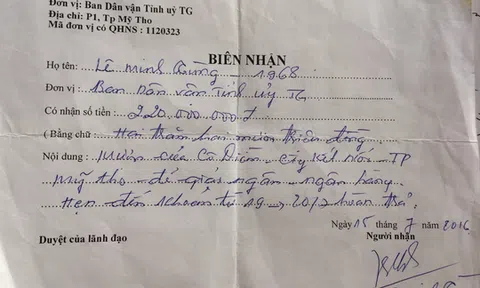 Đơn vị: Ban Dân vận Tỉnh uỷ TG
Địa chỉ: P1, Tp Mỹ Tho
Mã đơn vị có QHNS : 1120323
BIÊN NHẬN
Họ tên: Lê Minh Hùng - 1968
Đơn vị : Ban Dân vận Tỉnh ủy TG
Có nhận số tiền : 220.000.000 đ
( Bằng chữ : Hai trăm hai mươi triệu đồng
Nội dung : mượn của Cô Diễm - Cty Kết Nối - TP
Mỹ Tho - để giải ngân - ngân hàng.
Hẹn đến khoảng từ 19 → 20/7 hoàn trả.
Ngày 15 tháng 7 năm 2016
Duyệt của lãnh đạo
Người nhận